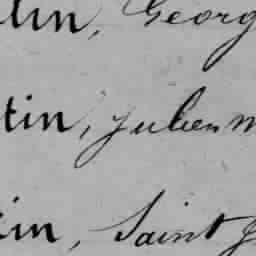 tin, Georg
tin, Julien m
tin, Saint J